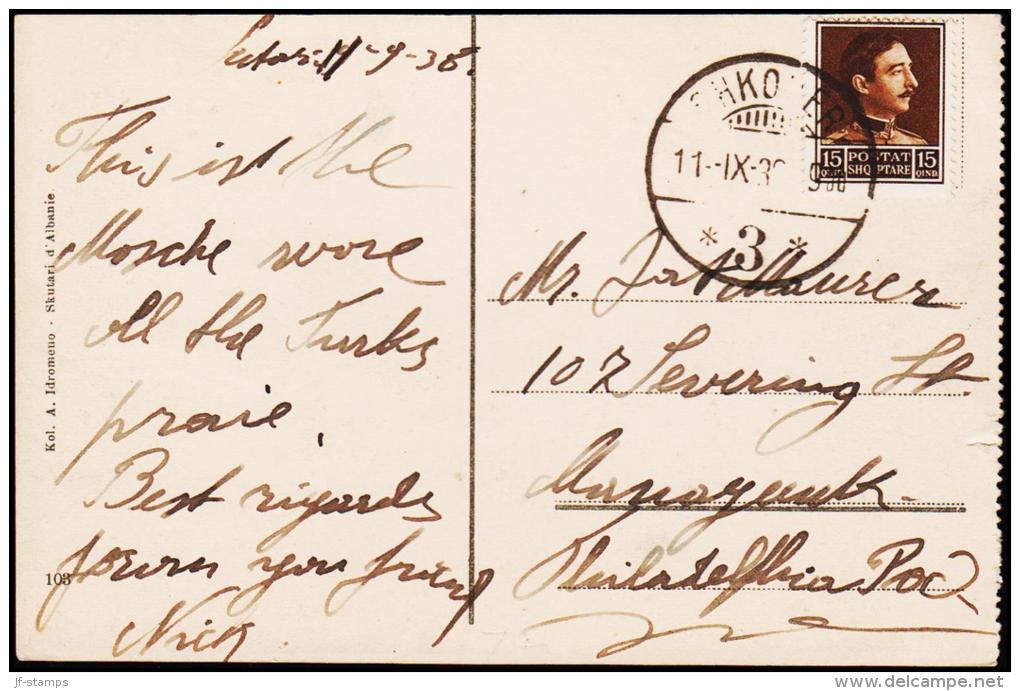 11-9-38.
This is the
Mosche wore
All the Turks
praie.
Best rigards
forom you friend
Nick
Kol. A. Idromeno - Skutari d'Albanie
103
SHKODER
11.-IX-3
*3*
15 POSTAT 15
QIND. SHQIPTARE QIND.
Mr. Maurer
107 Severing St.
Manayunk.
Philadelphia
jf-stamps
www.delcampe.net